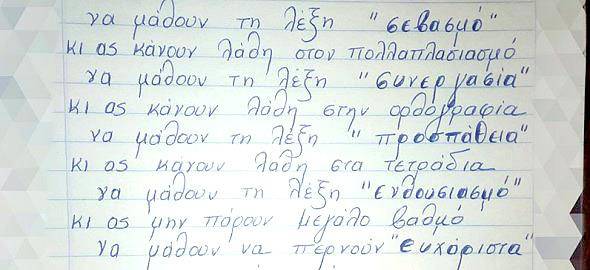 να μάθουν τη λέξη "σεβασμό"
κι ας κάνουν λάθη στον πολλαπλασιασμό
να μάθουν τη λέξη "συνεργασία"
κι ας κάνουν λάθη στην ορθογραφία
να μάθουν τη λέξη "προσπάθεια"
κι ας κάνουν λάθη στα τετράδια
να μάθουν τη λέξη "ενθουσιασμό"
κι ας μην πάρουν μεγάλο βαθμό
να μάθουν να περνούν "ευχάριστα"